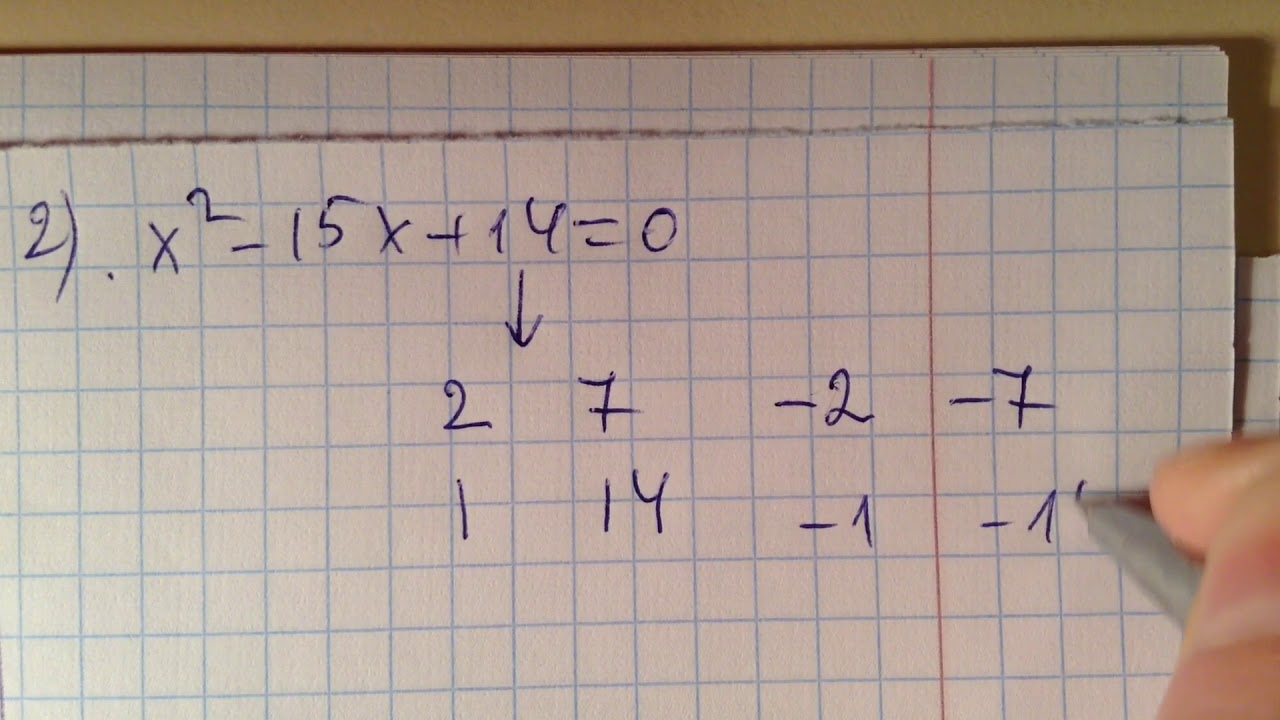 2). x² - 15x + 14 = 0
↓
2 7 -2 -7
1 14 -1 -1